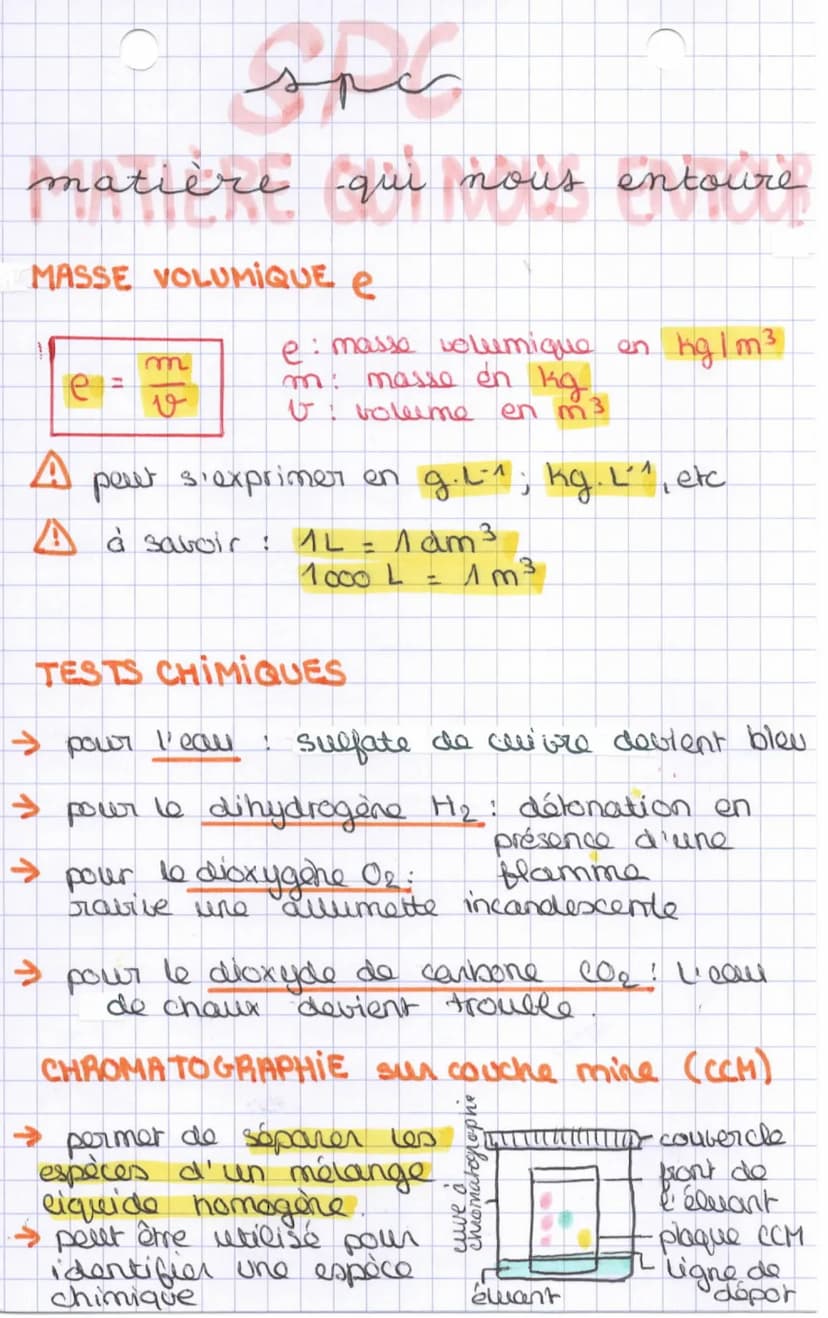 SPC
spc
MATIÈRE QUI NOUS ENTOUR
matière qui nous entoure
MASSE VOLUMIQUE e
e = m/v
e : masse volumique en kg/m³
m : masse en kg
v : volume en m³
⚠ peut s'exprimer en g.L-1 ; kg.L-1, etc
⚠ à savoir : 1L = 1 dm³
1000 L = 1 m³
TESTS CHIMIQUES
→ pour l'eau : sulfate de cuivre devient bleu
→ pour le dihydrogène H2 : détonation en
présence d'une
flamme
→ pour le dioxygène O2 :
ravive une allumette incandescente
→ pour le dioxyde de carbone CO2 : L'eau
de chaux devient trouble.
CHROMATOGRAPHIE sur couche mine (CCM)
→ permet de séparer les
espèces d'un mélange
liquide homogène.
→ peut être utilisé pour
identifier une espèce
chimique
cuve à
chromatographie
couvercle
front de
l'éluant
plaque CCM
ligne de
dépot
éluant